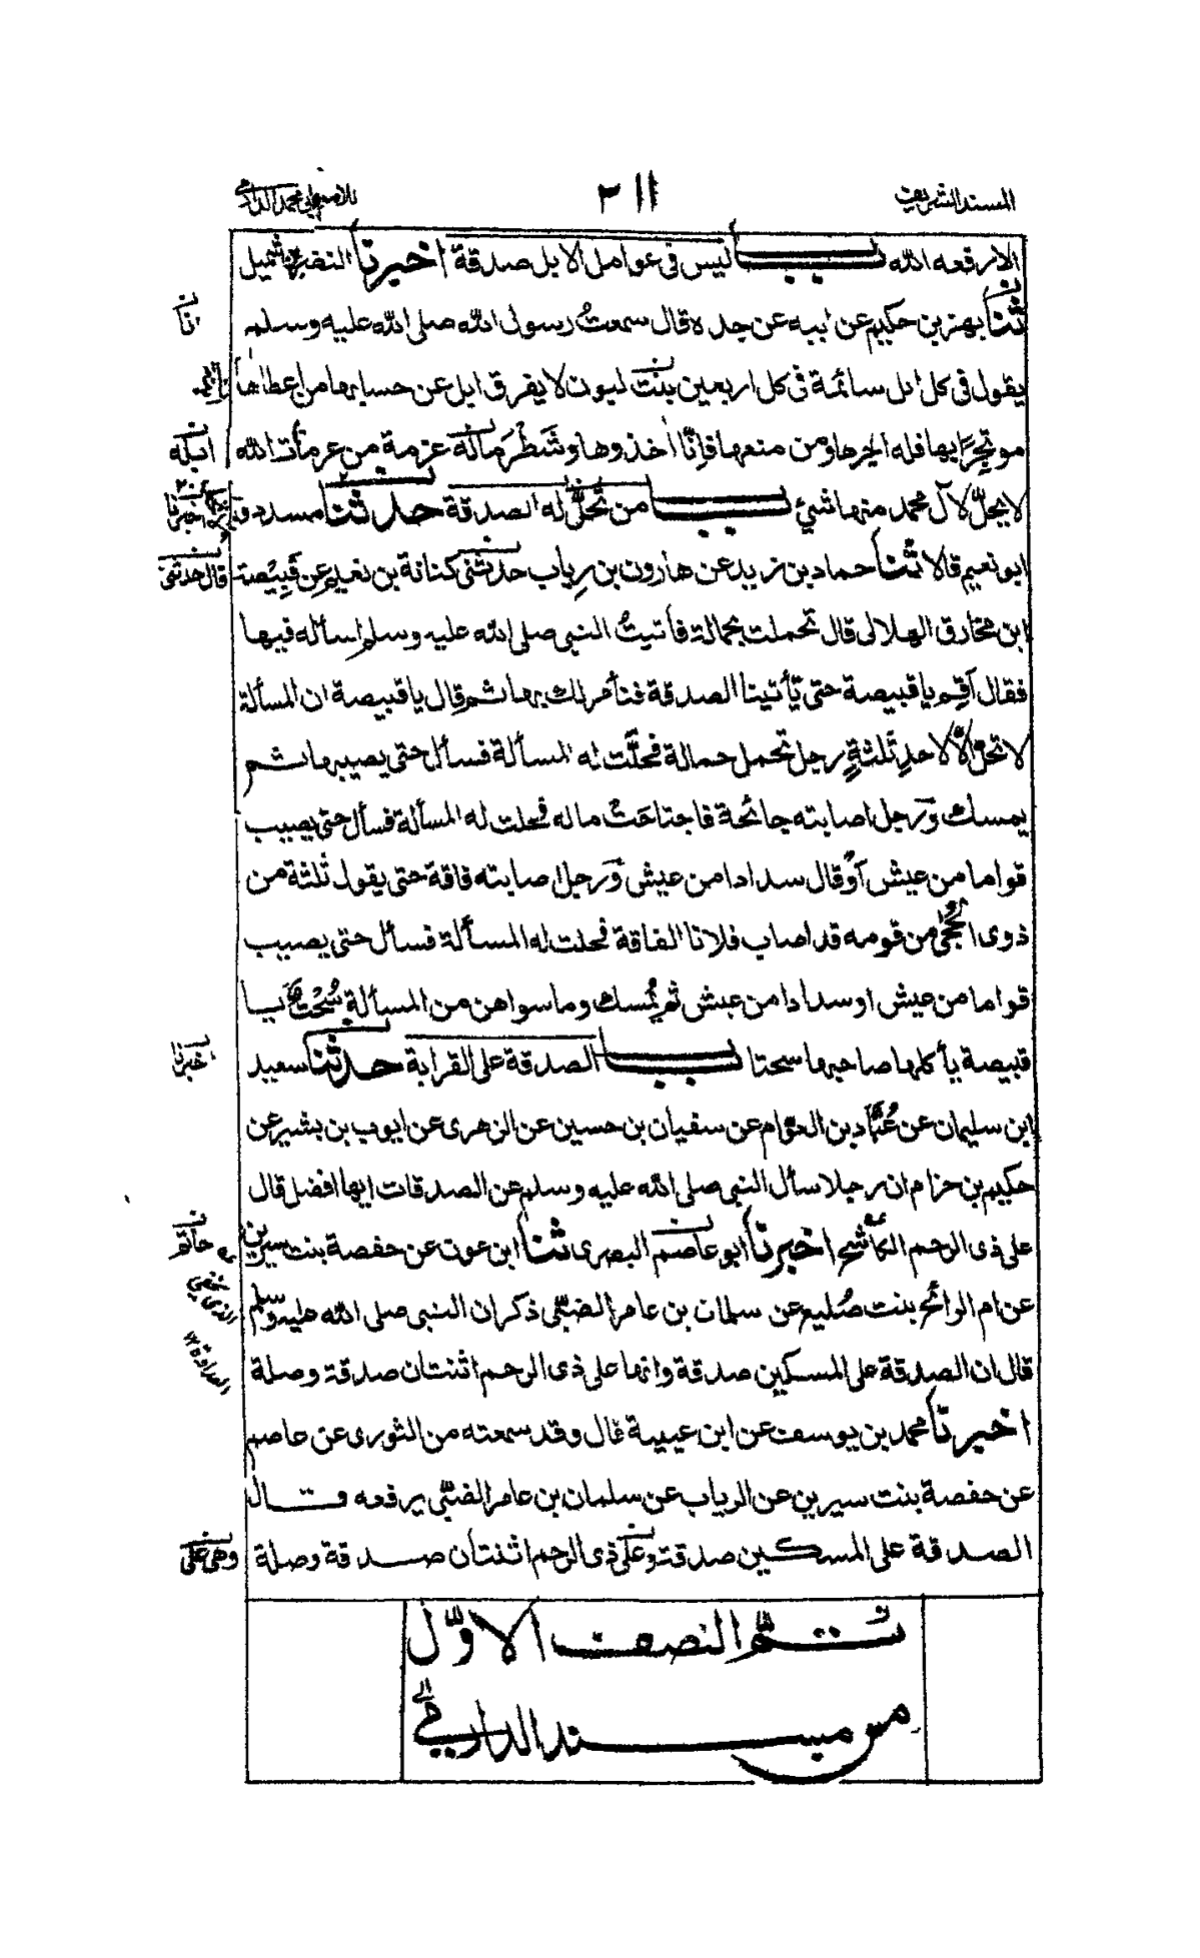 المسند الشريف ٢١١ للامام ابی محمد الدارمی
الا رفعه الله باب ليس فی عوامل الابل صدقة اخبرنا النضر بن شميل
ثنا بهز بن حكيم عن ابيه عن جده قال سمعتُ رسول الله صلی الله عليه وسلم
يقول فی كل ابل سائمة فی كل اربعين بنت لبون لا يفرق ابل عن حسابها من اعطاها
موتجرا بها فله اجرها ومن منعها فانّا اخذوها وشطر ماله عزمة من عزمات الله
لا يحلّ لآل محمد منها شیٔ باب من تحلّ له الصدقة حدثنا مسدد و
ابو نعيم قالا ثنا حماد بن زيد عن هارون بن رياب حدثنی كنانة بن نعيم عن قبيصة
ابن مخارق الهلالی قال تحملت بحمالة فأتيتُ النبی صلی الله عليه وسلم اسأله فيها
فقال اَقِم يا قبيصة حتی تأتينا الصدقة فنأمر لك بها ثم قال يا قبيصة ان المسألة
لا تحلّ الّا لاحدِ ثلثةٍ رجل تحمل حمالة فحلّت له المسألة فسأل حتی يصيبها ثم
يمسك وَرجل اصابته جائحة فاجتاحَتْ ماله فحلت له المسألة فسأل حتی يصيب
قواما من عيش اَوْ قال سدادا من عيش وَرجل اصابته فاقة حتی يقول ثلثة من
ذوی الحِجٰی من قومه قد اصاب فلانا الفاقة فحلت له المسألة فسأل حتی يصيب
قواما من عيش او سدادا من عيش ثم يُمسك وما سواهن من المسألة سُحْتٌ يا
قبيصة يأكلها صاحبها سحتا باب الصدقة علی القرابة حدثنا سعيد
ابن سليمان عن عبّاد بن العوّام عن سفيان بن حسين عن الزهری عن ايوب بن بشير عن
حكيم بن حزام ان رجلا سأل النبی صلی الله عليه وسلم عن الصدقات ايها افضل قال
علی ذی الرحم الكاشح اخبرنا ابو عاصم البصری ثنا ابن عون عن حفصة بنت سيرين
عن ام الرائح بنت صُليع عن سلمان بن عامر الضبّی ذكر ان النبی صلی الله عليه وسلم
قال ان الصدقة علی المسكين صدقة وانها علی ذی الرحم اثنتان صدقة وصلة
اخبرنا محمد بن يوسف عن ابن عيينة قال وقد سمعته من الثوری عن عاصم
عن حفصة بنت سيرين عن الرباب عن سلمان بن عامر الضبّی يرفعه قال
الصدقة علی المسكين صدقة وعلی ذی الرحم اثنتان صدقة وصلة
تمّ النصف الاوّل
من مسند الدارمی
انا
قال حدثنی
اخبرنا
الذی يخفی
العداوة ١٢
وهی علی